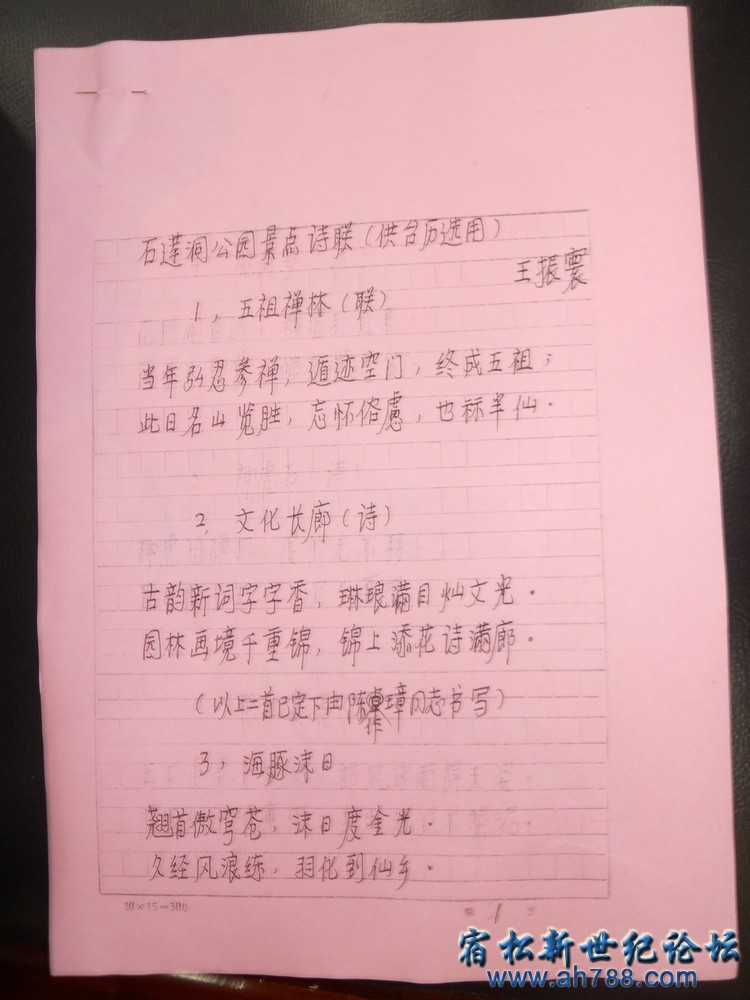 石莲洞公园景点诗联(供台历选用)
王振寰
1,五祖禅林(联)
当年弘忍参禅,遁迹空门,终成五祖;
此日名山览胜,忘怀俗虑,也称半仙.
2,文化长廊(诗)
古韵新词字字香,琳琅满目灿文光.
园林画境千重锦,锦上添花诗满廊.
(以上二首已定下由陈作璋同志书写)
3,海豚沐日
翘首傲穹苍,沐日度金光.
久经风浪练,羽化到仙乡.
20×15=300
第 1 页
宿松新世纪论坛
www.ah788.com